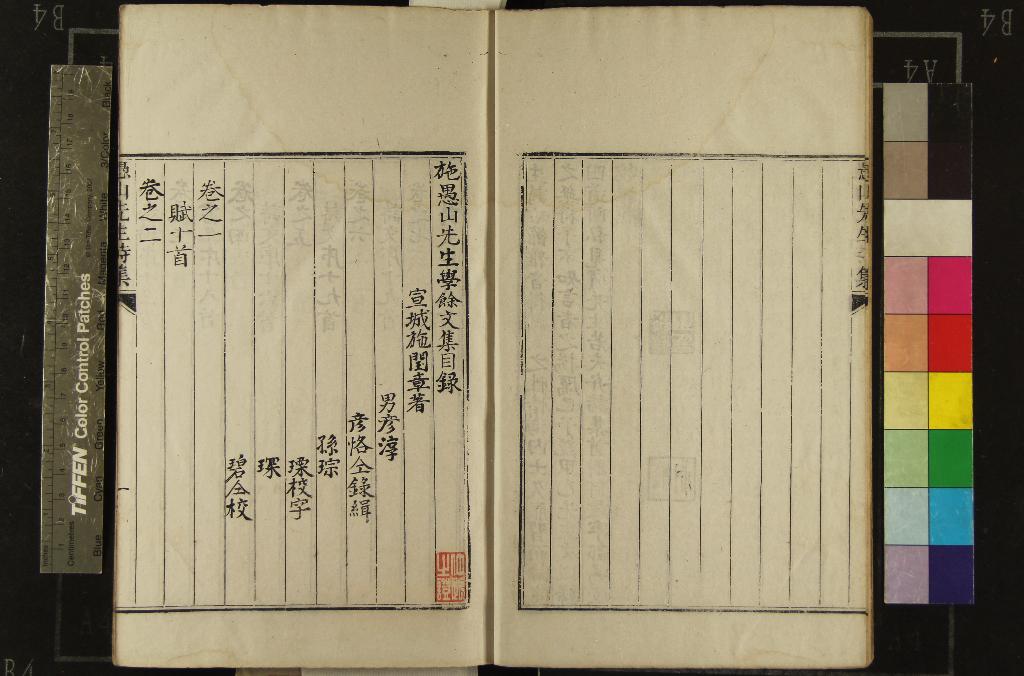 施愚山先生學餘文集目錄
宣城施閏章著
男彥淳
彥恪仝錄緝
孫琮
瑮校字
琛
碧仝校
卷之一
賦十首
卷之二
愚山先生詩集
一
TIFFEN Color Control Patches
Blue
Cyan
Green
Yellow
Red
Magenta
White
3/Color
Black
Inches
Centimetres
B4
B4
A4
B4